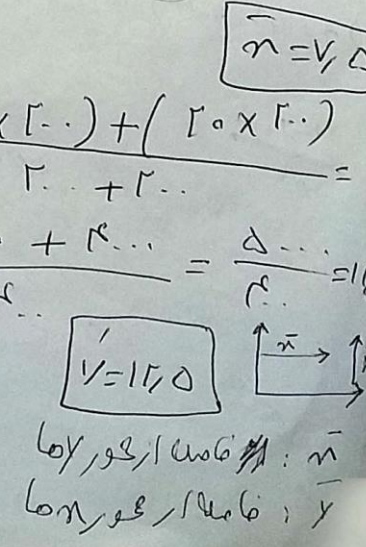 x̄ = ۷,۵
× ۲۰۰) + ( ۲۰ × ۲۰۰)
۲۰۰ + ۲۰۰ =
+ ۴۰۰۰ = ۵۰۰۰
۴۰۰ = ۱۲
ȳ = ۱۲,۵
x̄
x̄ : فاصله از محور yها
ȳ : فاصله از محور xها